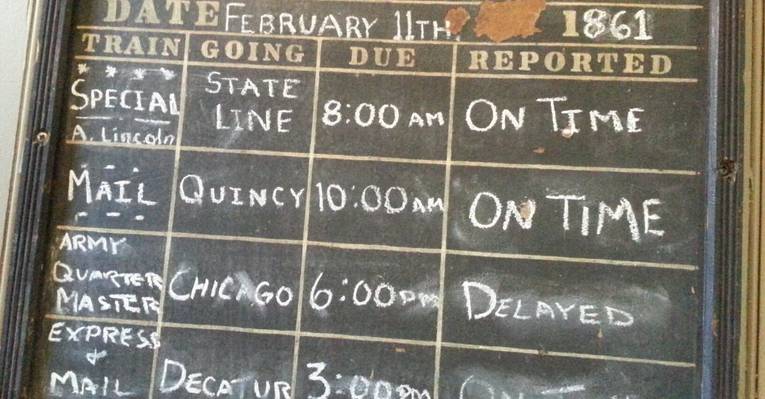 DATE FEBRUARY 11TH, 1861
TRAIN GOING DUE REPORTED
SPECIAL
A. Lincoln
STATE
LINE
8:00 AM
ON TIME
MAIL
QUINCY
10:00 AM
ON TIME
ARMY
QUARTER
MASTER
CHICAGO
6:00 PM
DELAYED
EXPRESS
&
MAIL
DECATUR
3:00 PM
ON TIME